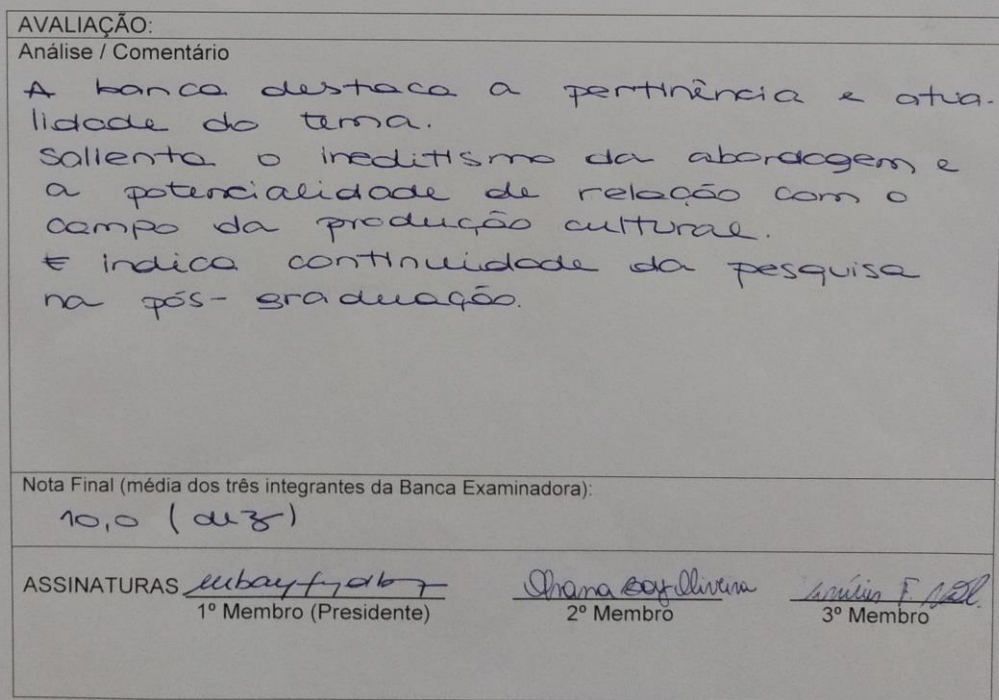 AVALIAÇÃO:
Análise / Comentário
A banca destaca a pertinência e atua-
lidade do tema.
Salienta o ineditismo da abordagem e
a potencialidade de relação com o
campo da produção cultural.
E indica continuidade da pesquisa
na pós-graduação.
Nota Final (média dos três integrantes da Banca Examinadora):
10,0 (dez)
ASSINATURAS Ohana Boy Oliveira
1º Membro (Presidente) 2º Membro 3º Membro